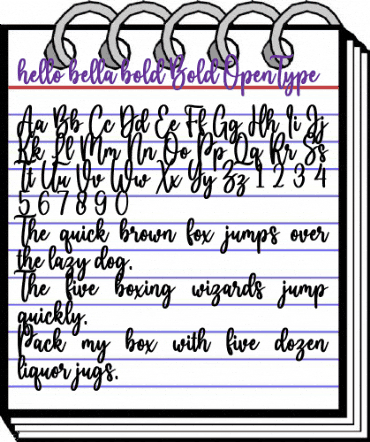 hello bella bold Bold OpenType
Aa Bb Cc Dd Ee Ff Gg Hh Ii Jj
Kk Ll Mm Nn Oo Pp Qq Rr Ss
Tt Uu Vv Ww Xx Yy Zz 1 2 3 4
5 6 7 8 9 0
The quick brown fox jumps over
the lazy dog.
The five boxing wizards jump
quickly.
Pack my box with five dozen
liquor jugs.